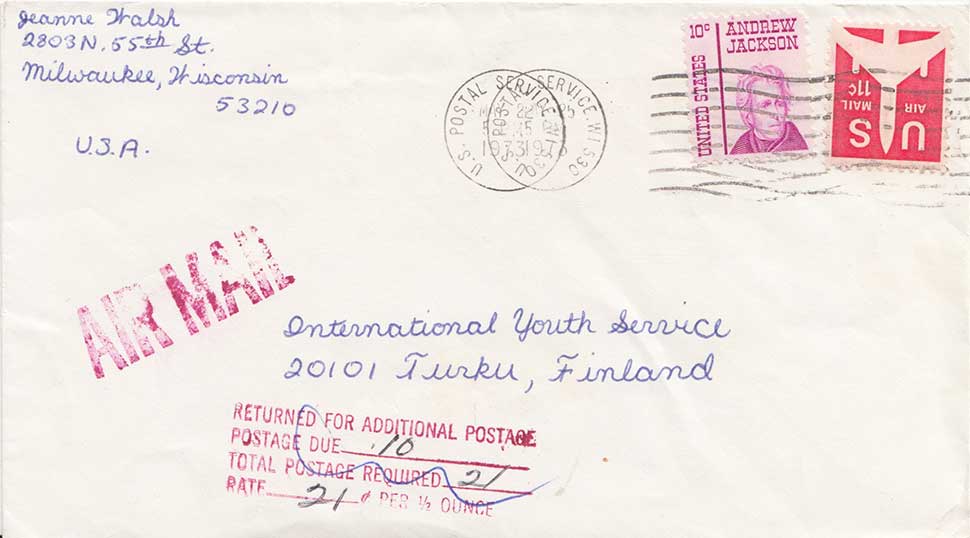 Jeanne Walsh
2803 N. 55th St.
Milwaukee, Wisconsin
53210
U.S.A.
U.S. POSTAL SERVICE
SERVICE WI 530
1973
10¢ ANDREW
JACKSON
UNITED STATES
US
AIR
MAIL
11¢
AIR MAIL
International Youth Service
20101 Turku, Finland
RETURNED FOR ADDITIONAL POSTAGE
POSTAGE DUE .10
TOTAL POSTAGE REQUIRED 21
RATE 21 ¢ PER ½ OUNCE